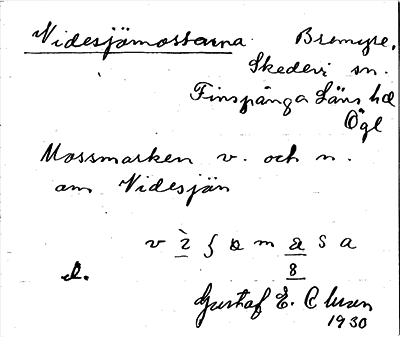 Videsjömossarna. Bremyre,
Skedevi sn.
Finspånga Läns hd
Ögl
Mossmarken v. och n.
om Videsjön
v i ʃ ɷ m a s a
8
d.
Gustaf E. Olsson
1930